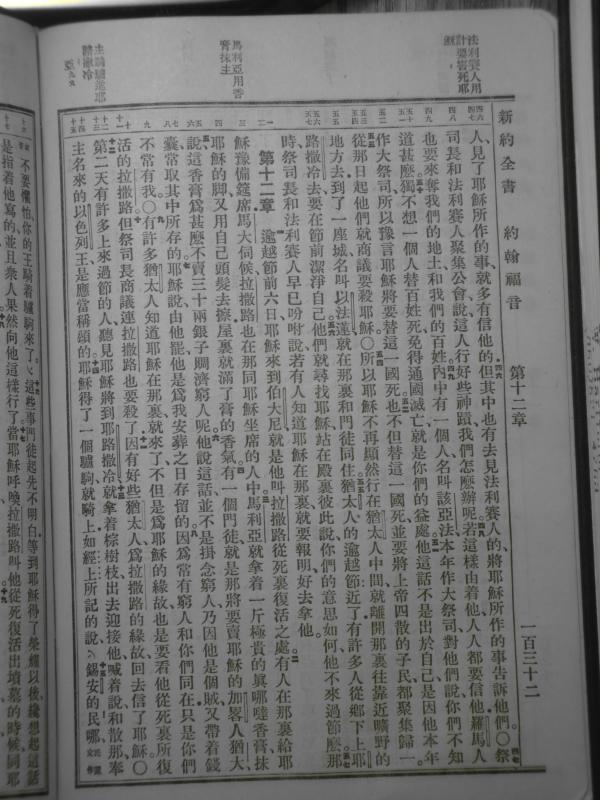 新約全書 約翰福音 第十二章 一百三十二
法利賽人用
計要害死耶
穌
馬利亞用香
膏抹主
主騎驢進耶
路撒冷
人、見了耶穌所作的事、就多有信他的、但其中也有去見法利賽人的、將耶穌所作的事告訴他們、〇祭
司長和法利賽人聚集公會、說、這人行好些神蹟、我們怎麼辦呢、若這樣由着他、人人都要信他、羅馬人
也要來奪我們的地土、和我們的百姓、內中有一個人、名叫該亞法、本年作大祭司、對他們說、你們不知
道甚麼、獨不想一個人替百姓死、免得通國滅亡、就是你們的益處、他這話不是出於自己、是因他本年
作大祭司、所以豫言耶穌將要替這一國死、也不但替這一國死、並要將上帝四散的子民、都聚集歸一、
從那日起他們就商議要殺耶穌、〇所以耶穌不再顯然行在猶太人中間、就離開那裏往靠近曠野的
地方去、到了一座城、名叫以法蓮、就在那裏和門徒同住、猶太人的逾越節近了、有許多人從鄉下上耶
路撒冷去、要在節前潔淨自己、他們就尋找耶穌、站在殿裏彼此說、你們的意思如何、他不來過節麼、那
時祭司長和法利賽人早已吩咐說、若有人知道耶穌在那裏、就要報明、好去拿他、
第十二章 逾越節前六日、耶穌來到伯大尼、就是他叫拉撒路從死裏復活之處、有人在那裏給耶
穌豫備筵席、馬大伺候、拉撒路也在那同耶穌坐席的人中、馬利亞就拿着一斤極貴的眞哪噠香膏、抹
耶穌的脚、又用自己頭髮去擦、屋裏就滿了膏的香氣、有一個門徒、就是那將要賣耶穌的加畧人猶大、
說、這香膏爲甚麼不賣三十兩銀子賙濟窮人呢、他說這話、並不是掛念窮人、乃因他是個賊、又帶着錢
囊、常取其中所存的、耶穌說、由他罷、他是爲我安葬之日存留的、因爲常有窮人和你們同在、只是你們
不常有我、〇有許多猶太人知道耶穌在那裏、就來了、不但是爲耶穌的緣故、也是要看他從死裏所復
活的拉撒路、但祭司長商議連拉撒路也要殺了、因有好些猶太人、爲拉撒路的緣故、回去信了耶穌、〇
第二天有許多上來過節的人、聽見耶穌將到耶路撒冷、就拿着棕樹枝出去迎接他、喊着說、和散那、奉
主名來的以色列王、是應當稱頌的、耶穌得了一個驢駒、就騎上、如經上所記的說、錫安的民哪、
不要懼怕、你的王騎着驢駒來了、這些事門徒起先不明白、等到耶穌得了榮耀以後、纔想起這話
是指着他寫的、並且衆人果然向他這樣行了、當耶穌呼喚拉撒路、叫他從死復活出墳墓的時候、同耶